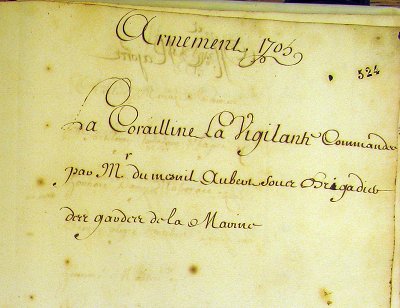 Armement. 1705
524
La Corailline La Vigilante Commandé
par Mr. du menil Aubert sous Brigadier
des gardes de la Marine